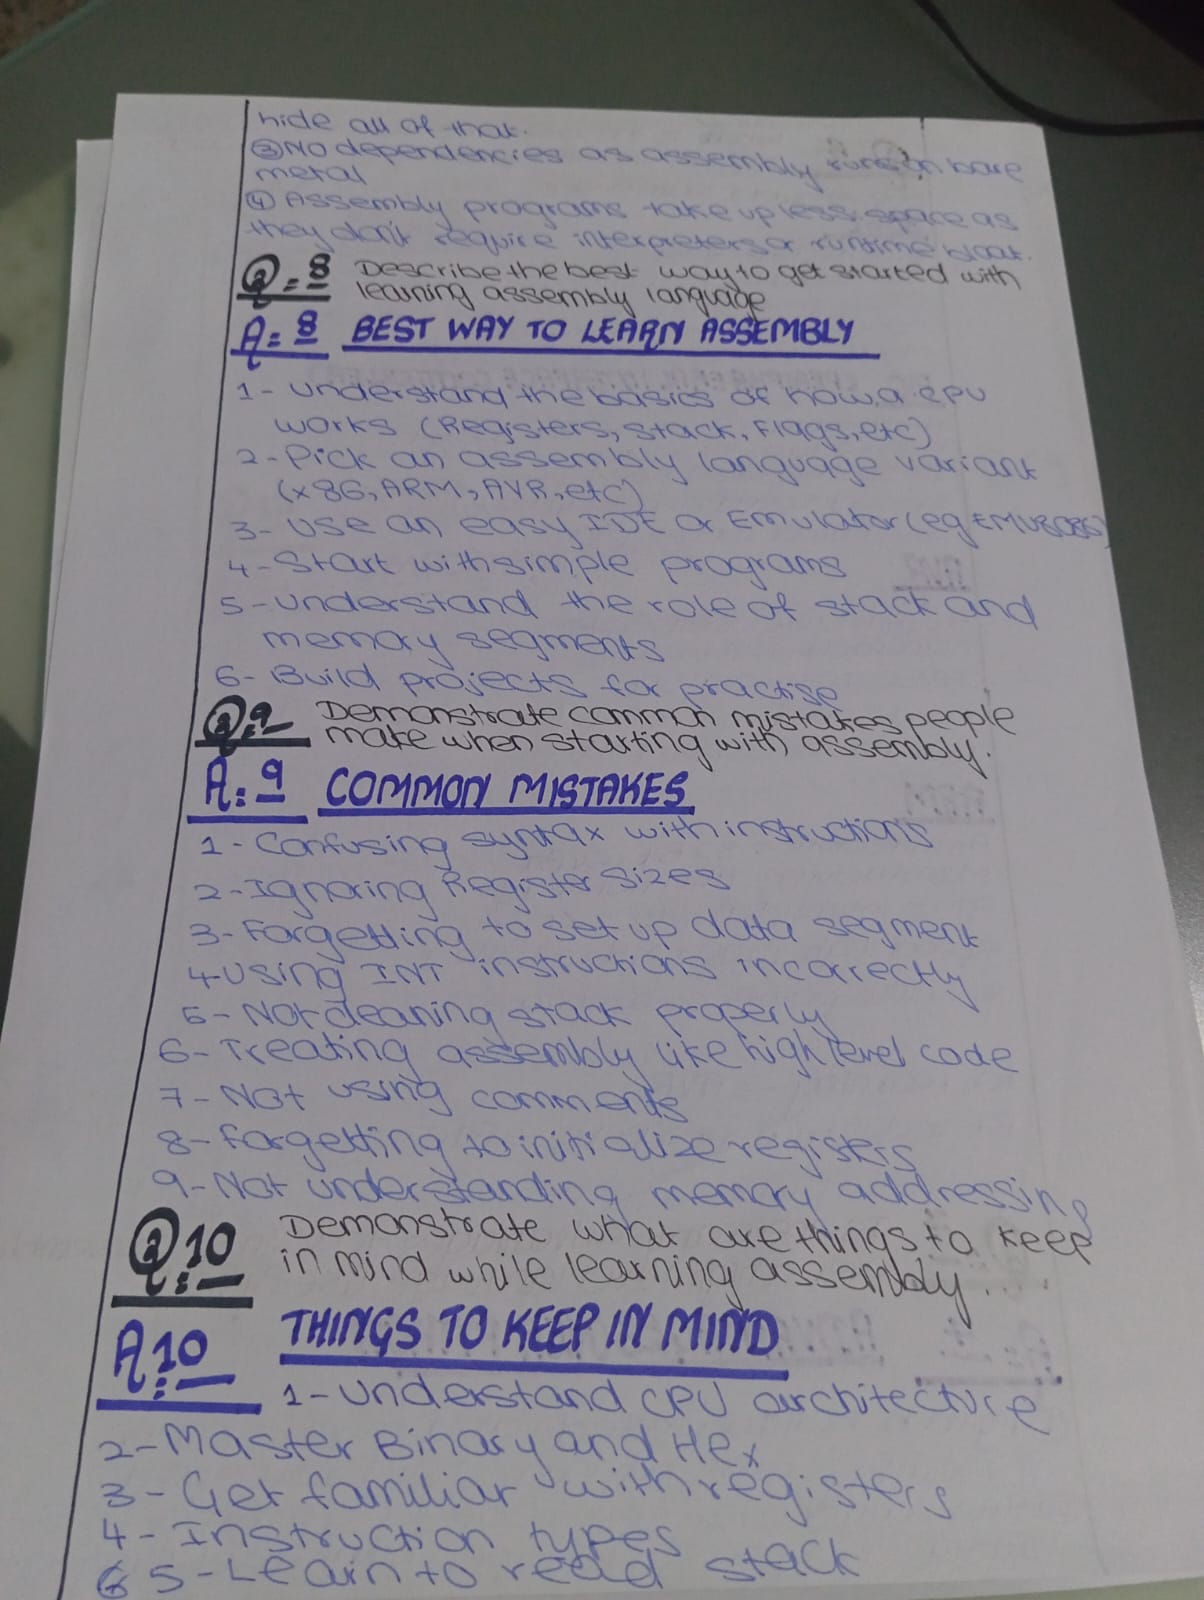 hide all of that.
③ No dependencies as assembly runs on bare
metal
④ Assembly programs take up less space as
they don't require interpreters or runtime bloat.
Q=8 Describe the best way to get started with
learning assembly language
A=8 BEST WAY TO LEARN ASSEMBLY
1- Understand the basics of how a CPU
works (Registers, Stack, Flags, etc)
2- Pick an assembly language variant
(x86, ARM, AVR, etc)
3- Use an easy IDE or Emulator (eg EMU8086)
4- Start with simple programs
5- Understand the role of stack and
memory segments
6- Build projects for practise
Q:9 Demonstrate common mistakes people
make when starting with assembly.
A:9 COMMON MISTAKES
1- Confusing syntax with instructions
2- Ignoring Register sizes
3- Forgetting to set up data segment
4- Using INT instructions incorrectly
5- Not cleaning stack properly
6- Treating assembly like high level code
7- Not using comments
8- Forgetting to initialize registers
9- Not understanding memory addressing
Q:10 Demonstrate what are things to keep
in mind while learning assembly.
A:10 THINGS TO KEEP IN MIND
1- Understand CPU architecture
2- Master Binary and Hex
3- Get familiar with registers
4- Instruction types
5- Learn to read stack